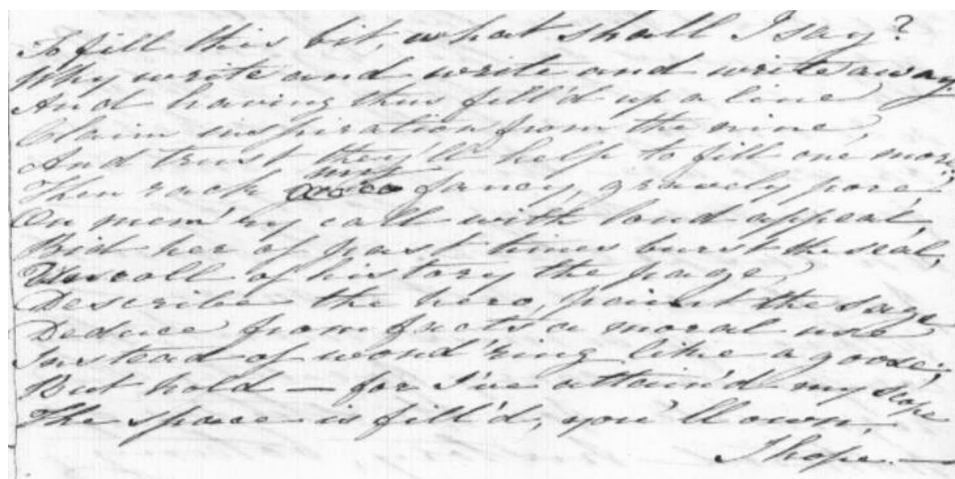 To fill this bit, what shall I say?
Why write and write and write away,
And having thus fill'd up a line
Claim inspiration from the nine,
And trust they'll help to fill one more;
my
Then rack fancy, gravely pore,
On mem'ry call with loud appeal,
Bid her of past times burst the seal,
Unroll of history the page,
Describe the hero, paint the sage
Deduce from facts a moral use
Instead of wond'ring like a goose:
But hold — for I've attain'd my scope
The space is fill'd, you'll own,
I hope. —